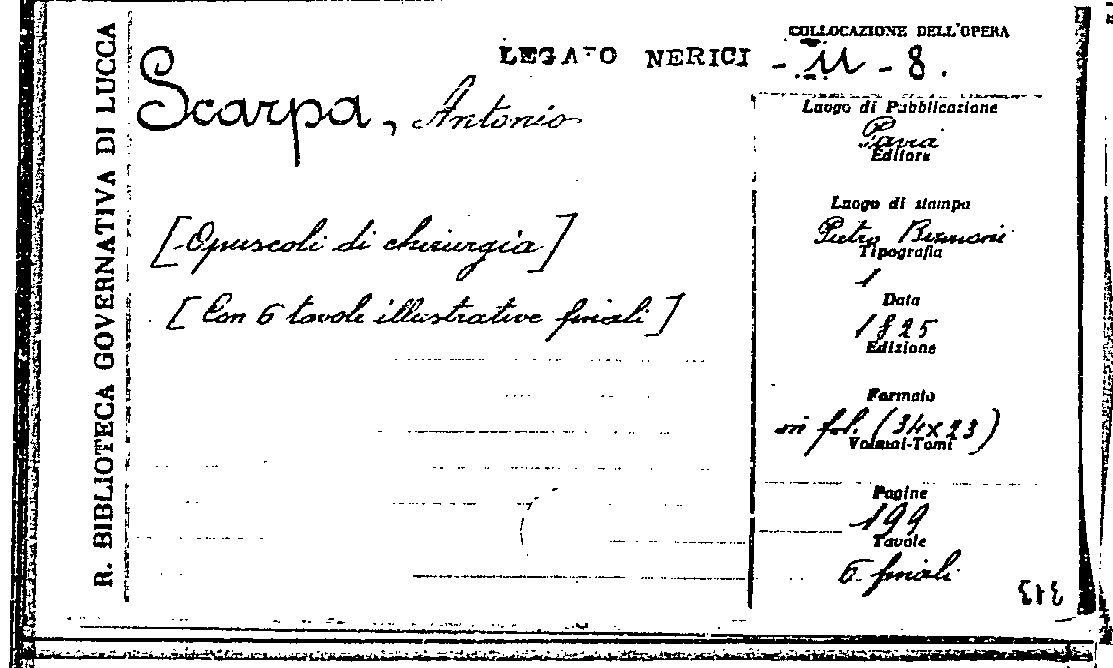 R. BIBLIOTECA GOVERNATIVA DI LUCCA
LEGATO NERICI
COLLOCAZIONE DELL'OPERA
- 11 - 8.
Scarpa, Antonio
[Opuscoli di chirurgia]
[Con 6 tavole illustrative finali]
Luogo di Pubblicazione
Pavia
Editore
Luogo di stampa
Pietro Bizzoni
Tipografia
1
Data
1825
Edizione
Formato
in fol. (34x23)
Volumi-Tomi
Pagine
199
Tavole
6 finali
313